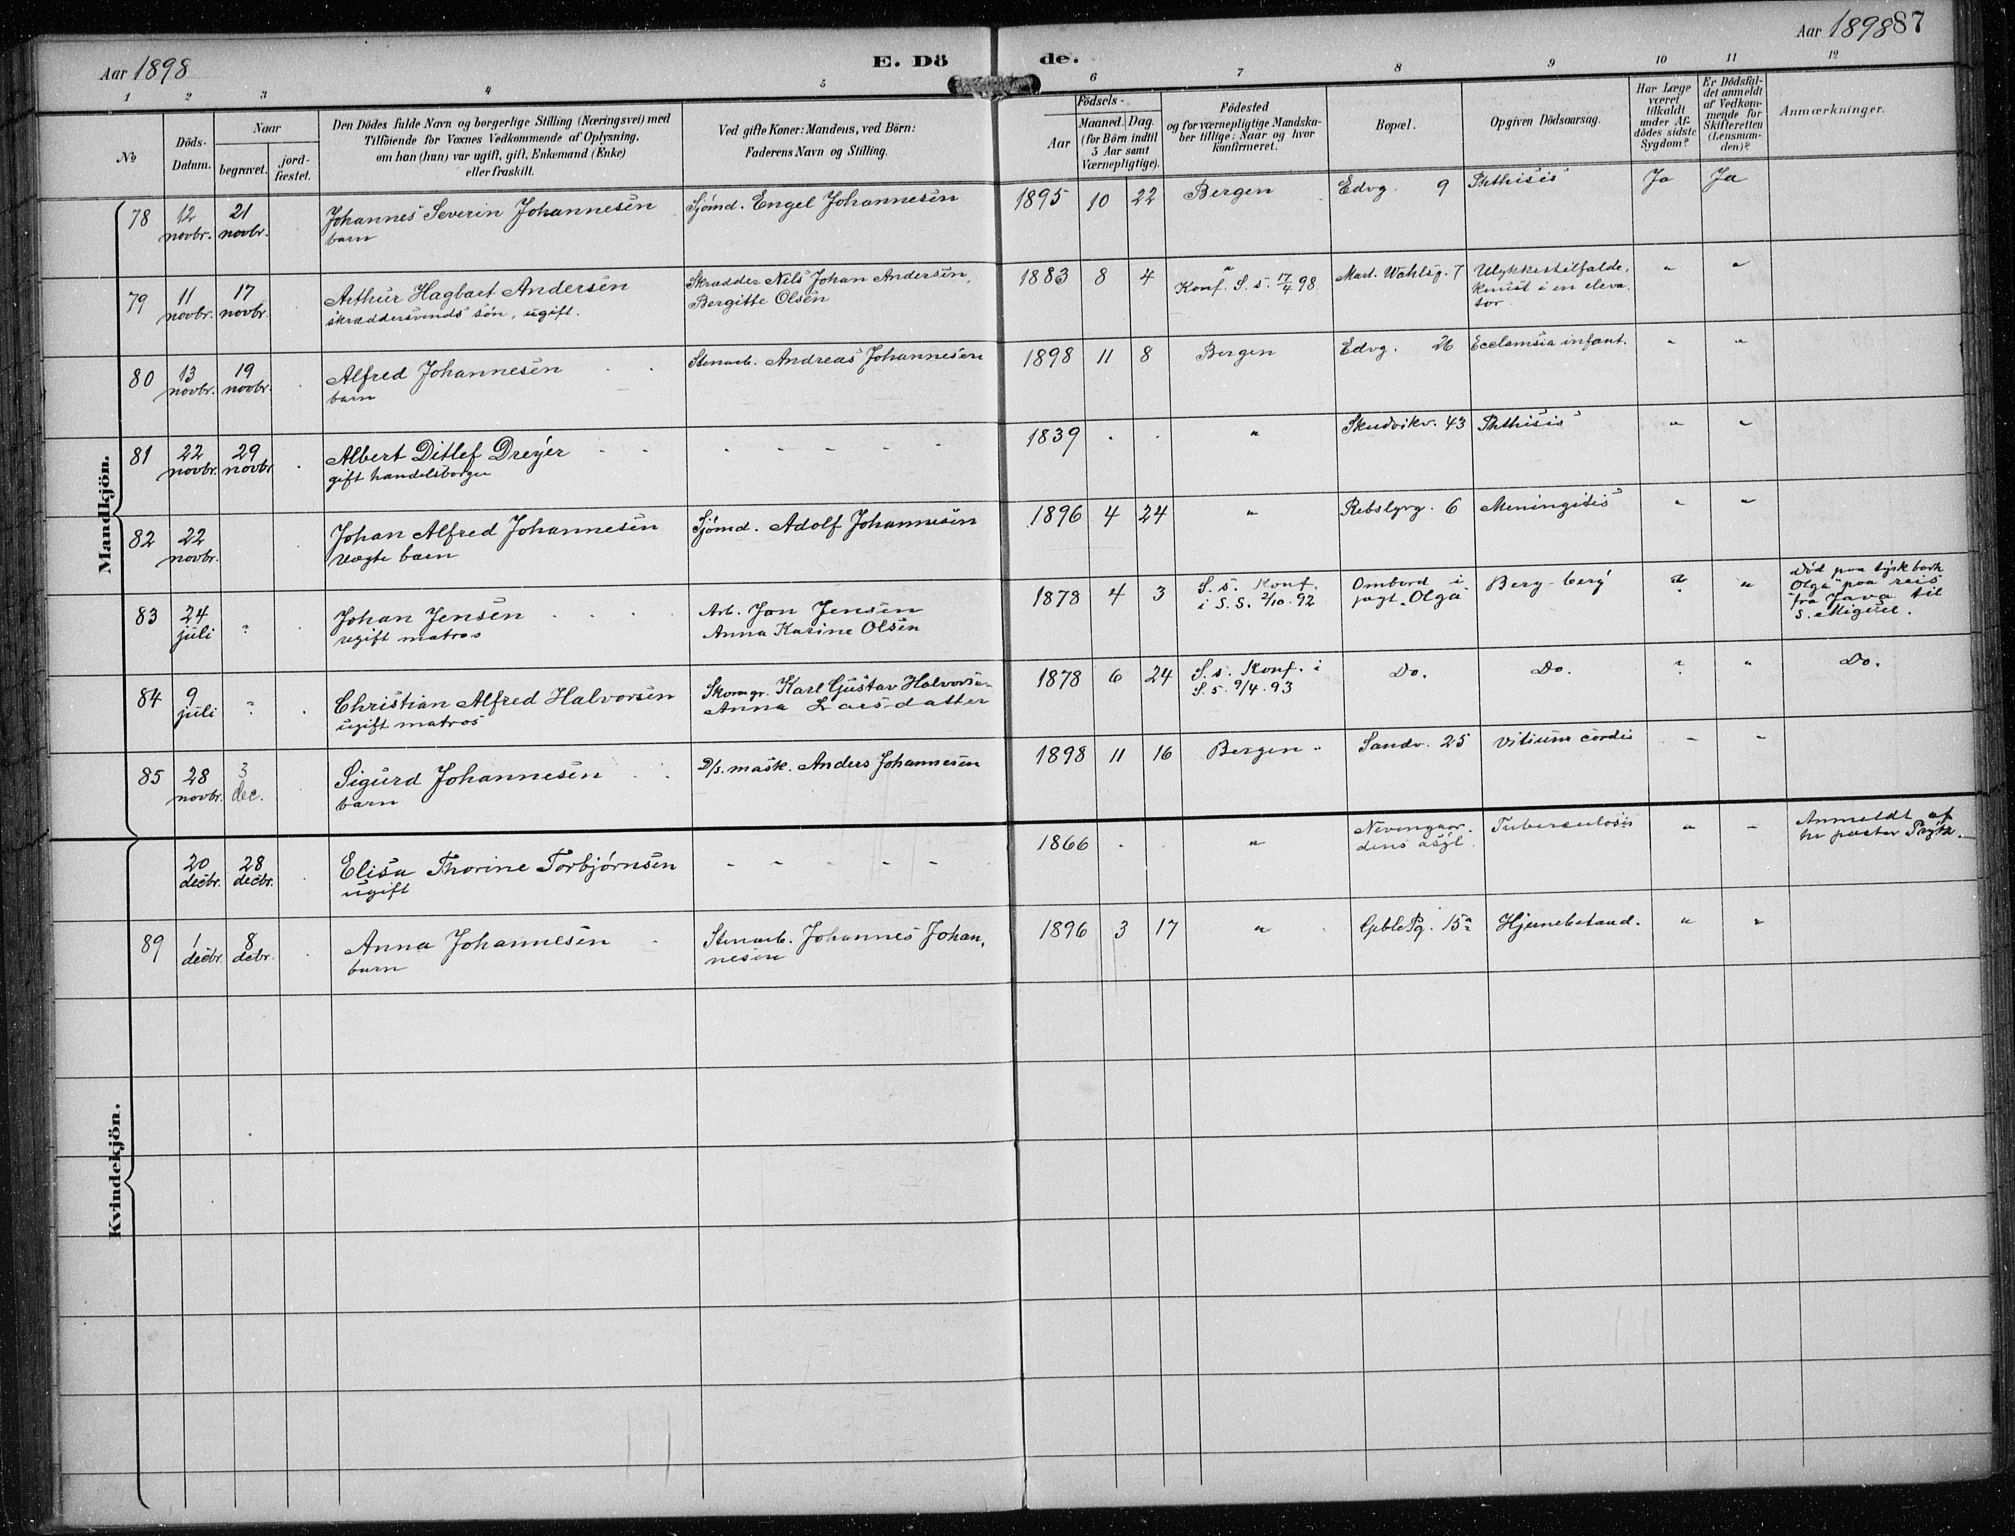 Aar 1898
E. Dö
de.
Aar 1898
87
1 2 3 4 5 6 7 8 9 10 11 12
No
Döds-
Datum.
Naar
begravet.
jord-
fæstet.
Den Dödes fulde Navn og borgerlige Stilling (Næringsvei) med
Tilföiende for Voxnes Vedkommende af Oplysning,
om han (hun) var ugift, gift, Enkemand (Enke)
eller fraskilt.
Ved gifte Koner: Mandens, ved Börn:
Faderens Navn og Stilling.
Födsels-
Aar
Maaned. Dag.
(for Börn indtil
5 Aar samt
Værnepligtige).
Födested
og for værnepligtige Mandska-
ber tillige: Naar og hvor
konfirmeret.
Bopæl.
Opgiven Dödsaarsag.
Har Læge
været
tilkaldt
under Af-
dödes sidste
Sygdom?
Er Dödsfal-
det anmeldt
af Vedkom-
mende for
Skifteretten
(Lensman-
den)?
Anmærkninger.
Mandkjön.
78 12 novbr. 21 novbr. Johannes Severin Johannesen Sjømd. Engel Johannesen 1895 10 22 Bergen Edvg. 9 Phthisis Ja Ja
barn
79 11 novbr. 17 novbr. Arthur Hagbart Andersen Skrædder Nils Johan Andersen, 1883 8 4 " Mart. Wahlsg. 7 Ulykkestilfælde, " "
skræddersvends søn, ugift. Bergitte Olsen Konf. S. s. 17/4 98 knust i en eleva-
tor
80 13 novbr. 19 novbr. Alfred Johannesen Stenarb. Andreas Johannesen 1898 11 8 Bergen Edvg. 26 Ecclamsia infant. " "
barn
81 22 novbr. 29 novbr Albert Ditlef Dreyer - - - - - - - 1839 . . " Skudvikv. 43 Phthisis " "
gift handelsborger
82 22 novbr. Johan Alfred Johannesen Sjömd. Adolf Johannesen 1896 4 24 " Rebslgrg. 6 Meningitis " "
uægte barn
83 24 juli ? Johan Jensen Arb. Jon Jensen 1878 4 3 S. s. Konf. Ombord i Bery-bery ? " Død paa tysk bark
ugift matros Anna Karine Olsen i S. S. 2/10. 92 "Olga" "Olga" paa reis
fra Java til
S. Miguel.
84 9 juli ? Christian Alfred Halvorsen Skomgr. Karl Gustav Halvorsen 1878 6 24 S. s. Konf. i Do. Do. ? " Do.
ugift matros Anna Larsdatter S. s. 9/4. 93
85 28 novbr. 3 dec. Sigurd Johannesen D/s. mask. Anders Johannesen 1898 11 16 Bergen Sandv. 25 Vitium cordis " "
barn
Kvindekjön.
20 decbr. 28 decbr. Elisa Thorine Torbjørnsen - - - - - 1866 . . " Nevengaar- Tuberculosis " " Anmeldt af
ugift dens asyl. hr pastor Prytz.
89 1 decbr. 8 decbr. Anna Johannesen Stenarb. Johannes Johan- 1896 3 17 " 15a Hjernebetænd. " "
barn nesen